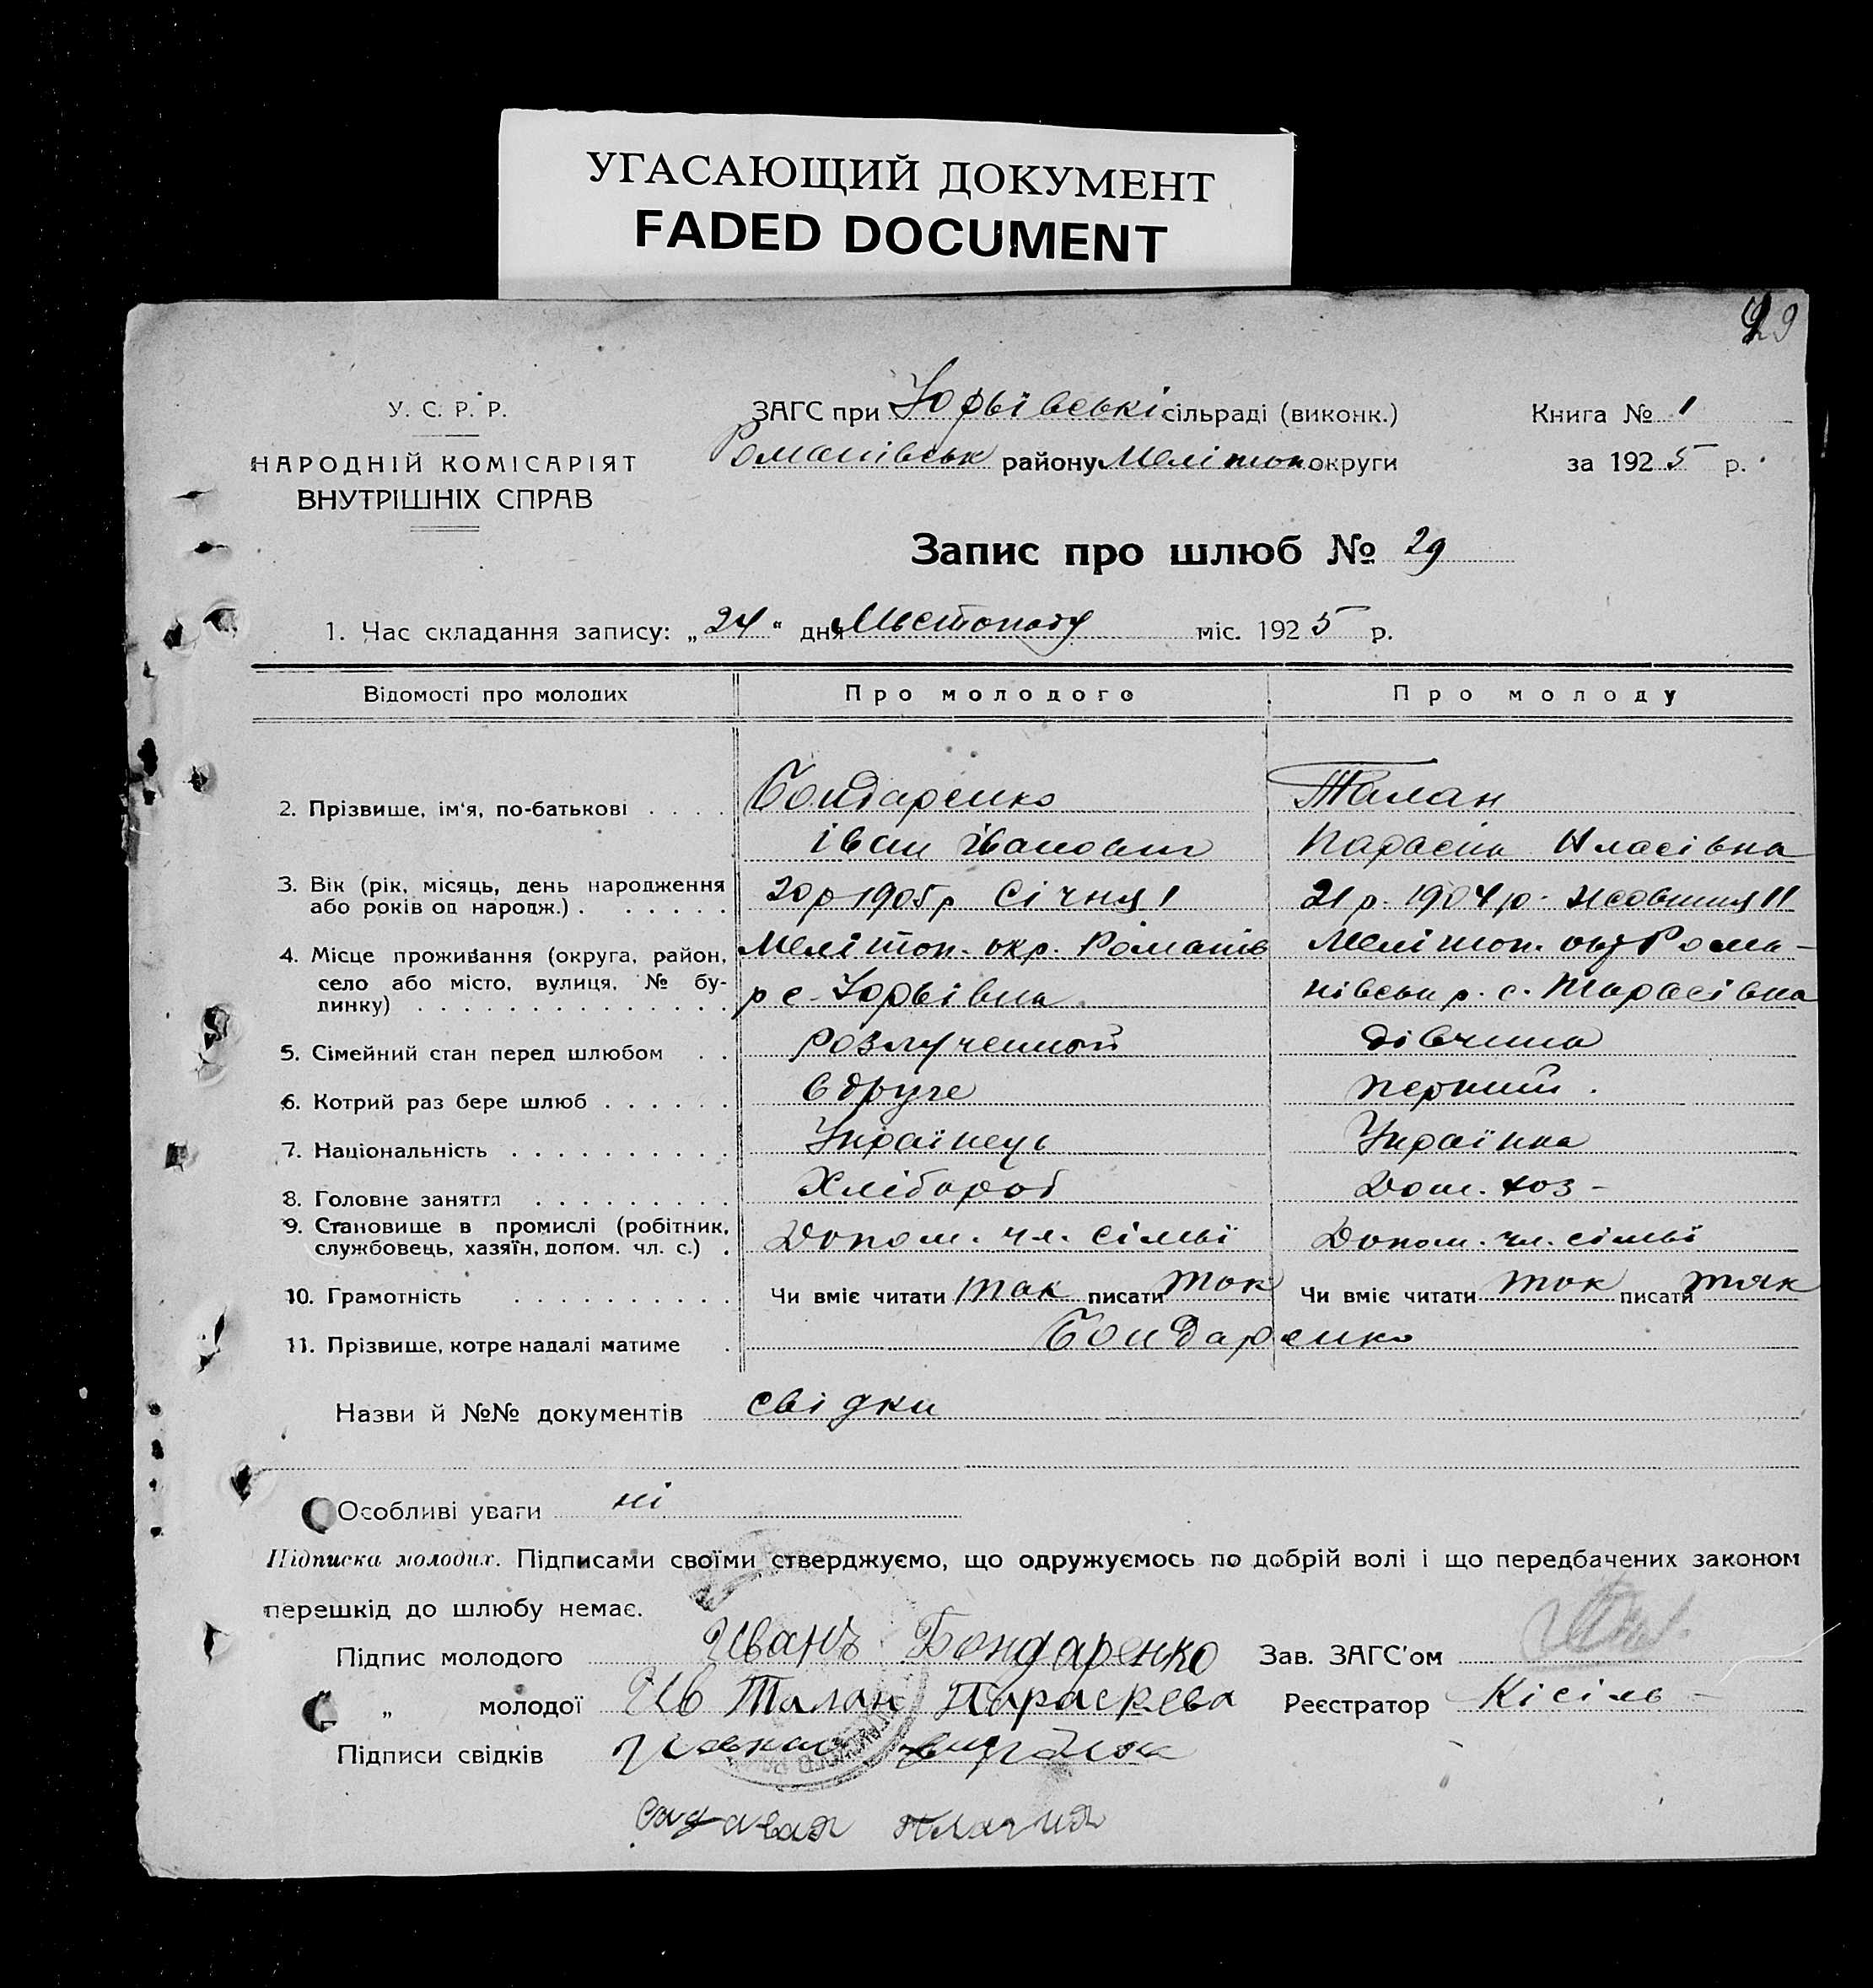 УГАСАЮЩИЙ ДОКУМЕНТ
FADED DOCUMENT
29
У. С. Р. Р.
НАРОДНІЙ КОМІСАРІЯТ
ВНУТРІШНІХ СПРАВ
ЗАГС при Юрьївські сільраді (виконк.)
Романівськ району Мелітоп. округи
Книга № 1
за 1925 р.
Запис про шлюб № 29
1. Час складання запису: „24“ дня Листопаду міс. 1925 р.
Відомості про молодих Про молодого Про молоду
2. Прізвище, ім'я, по-батькові . . . . Бондаренко Талан
Іван Іванович Парасka Власівна
3. Вік (рік, місяць, день народження 20 р 1905 р Січня 1 21 р. 1904 р. Жовтня 11
або років од народж.) . . . . . .
4. Місце проживання (округа, район, Мелітоп. окр. Романів Мелітоп. окр Рома-
село або місто, вулиця, № бу- р с. Юрьівка нівськ р. с. Тарасівка
динку) . . . . . . . . . . . . . .
5. Сімейний стан перед шлюбом . . розлученный дівчина
6. Котрий раз бере шлюб . . . . . . вдруге перший.
7. Національність . . . . . . . . . . Українець Українка
8. Головне заняття . . . . . . . . . Хлібороб Дом. хоз-
9. Становище в промислі (робітник, Допом. чл. сімьї Допом. чл. сімьї
службовець, хазяїн, допом. чл. с.) .
10. Грамотність . . . . . . . . . . Чи вміє читати так писати так Чи вміє читати так писати так
11. Прізвище, котре надалі матиме . Бондаренко
Назви й №№ документів свідки
Особливі уваги ні
Підписка молодих. Підписами своїми стверджуємо, що одружуємось по добрій волі і що передбачених законом
перешкід до шлюбу немає.
Підпис молодого Иванъ Бондаренко Зав. ЗАГС'ом
„ молодої Талан Параскева Реєстратор Кісіль
Підписи свідків